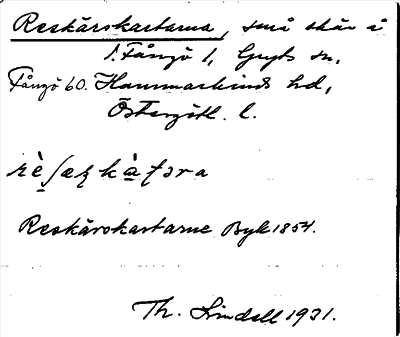 Reskärskastarna, små skär å
s. Fångö 1, Gryts sn,
Fångö 60. Hammarkinds hd,
Östergötl. l.
Reskärskastarne Byk 1854.
Th. Lindell 1931.